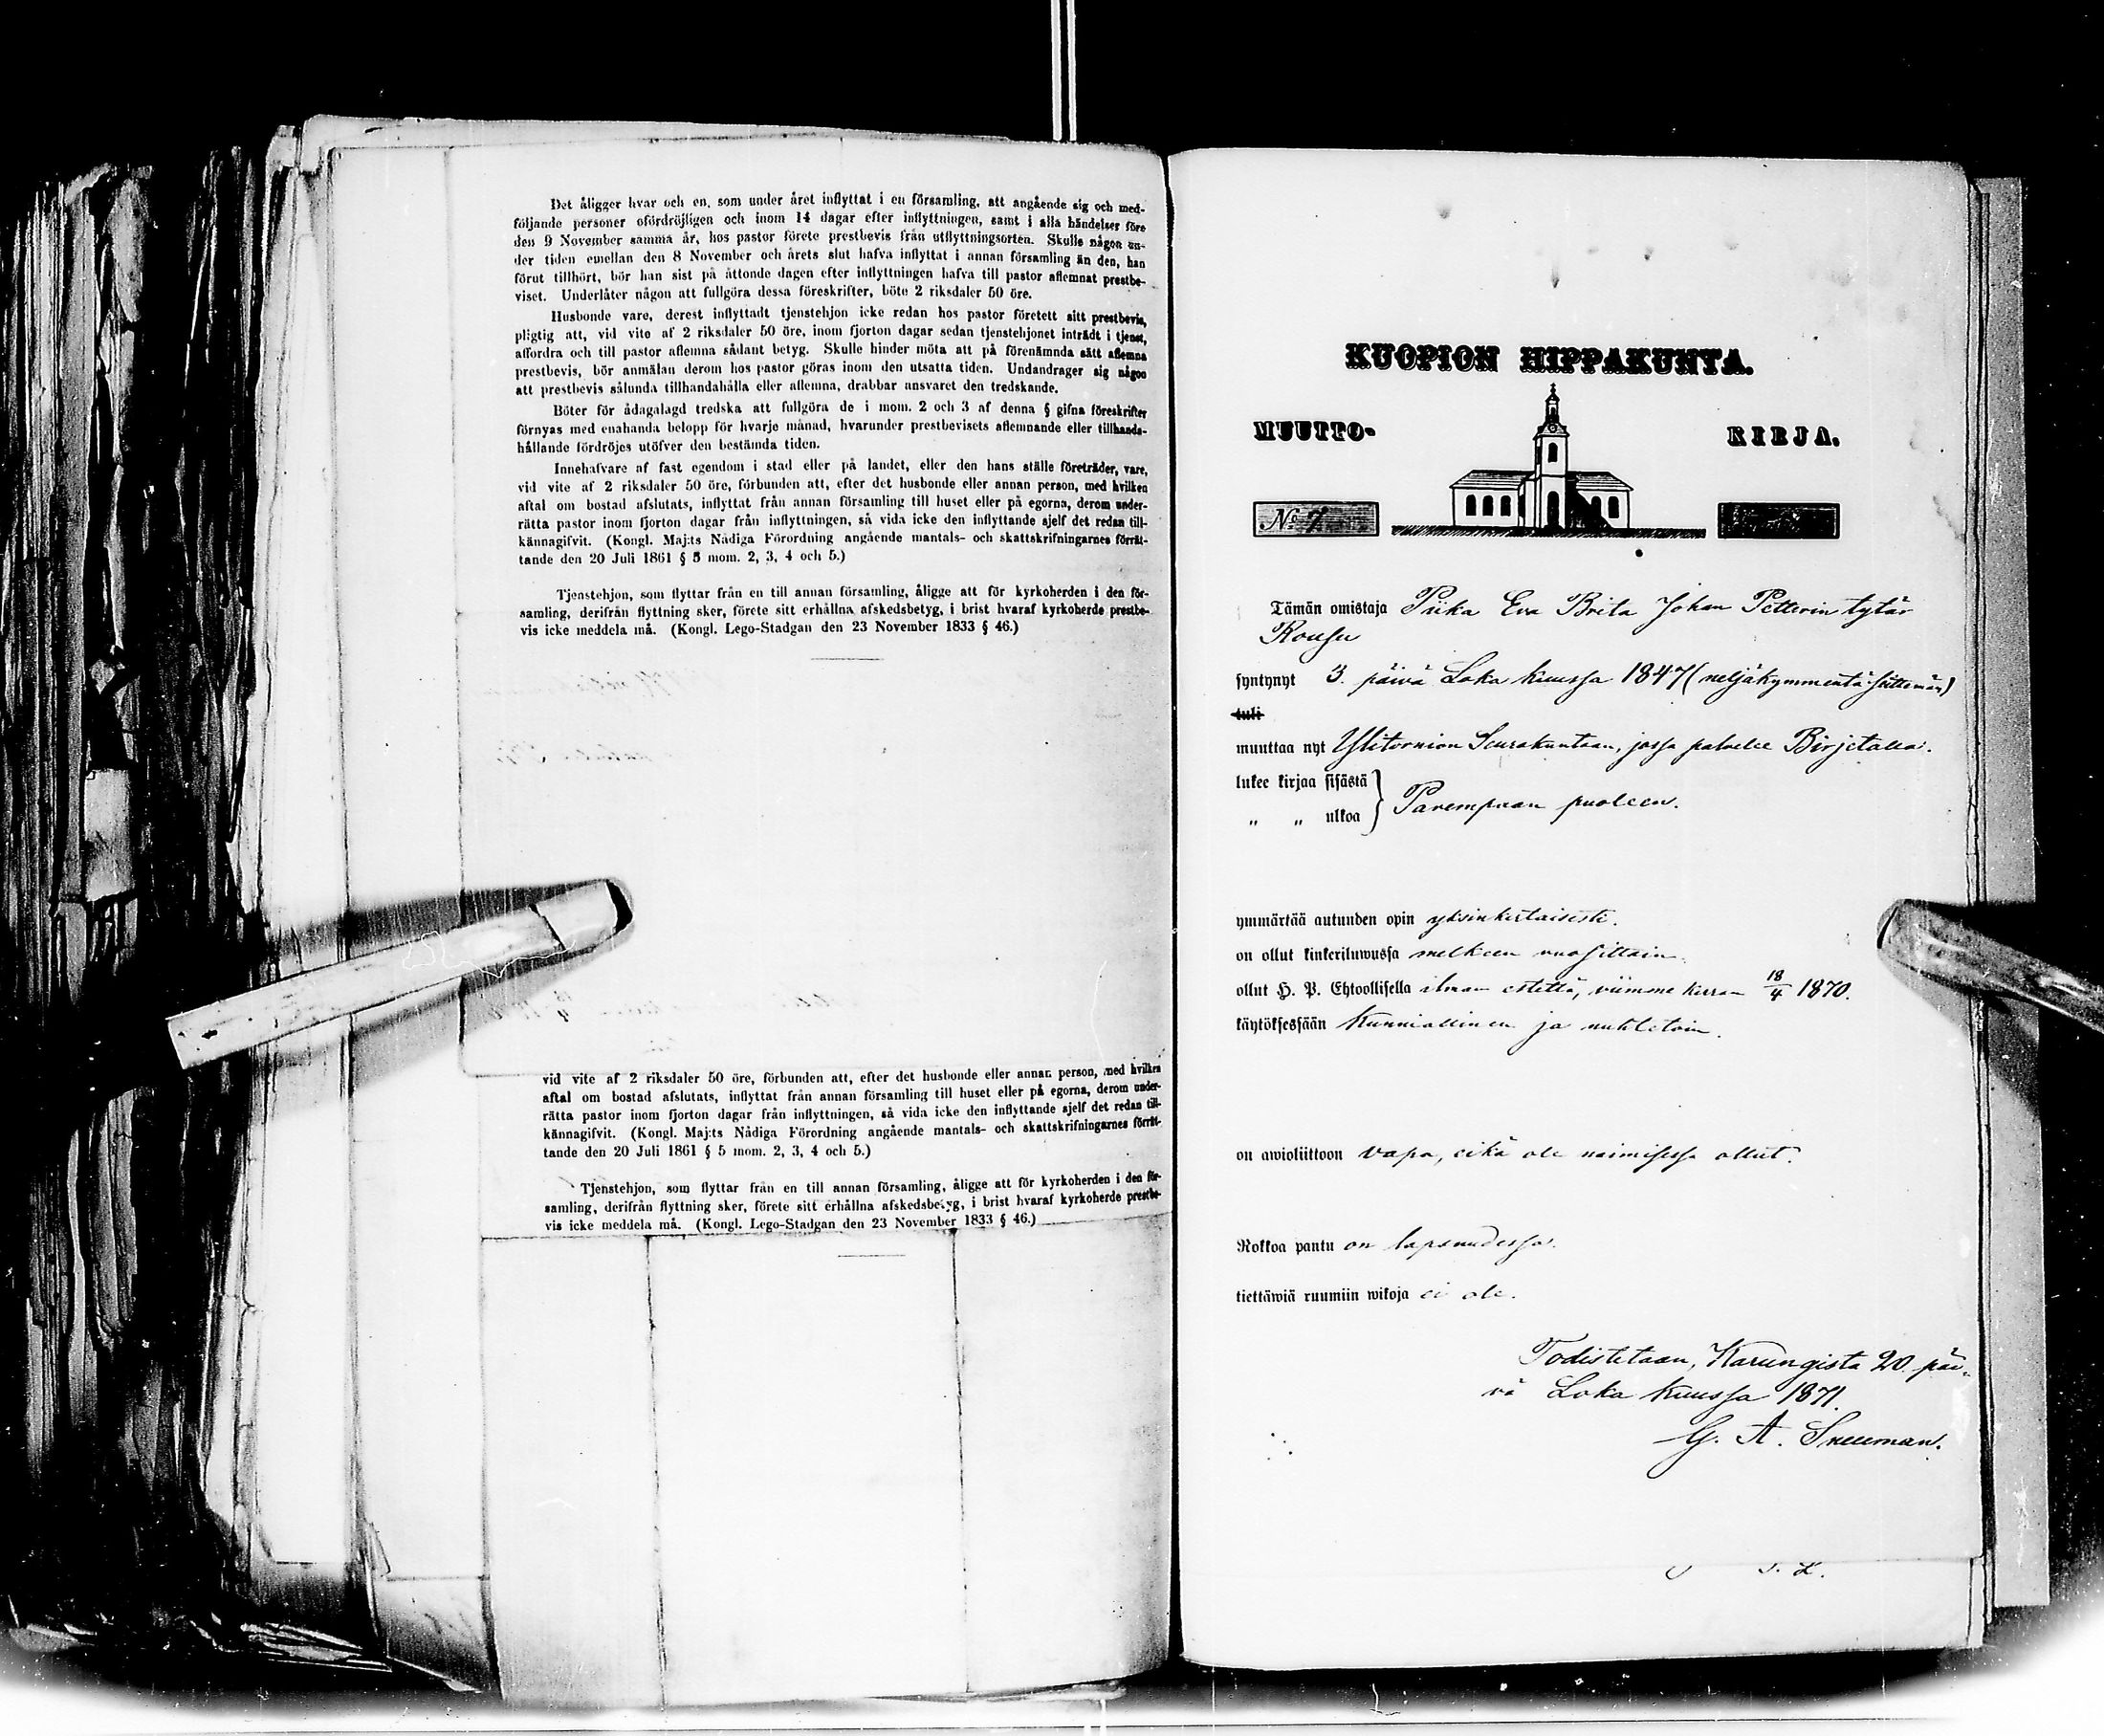 Det åligger hvar och en, som under året inflyttat i en församling, att angående sig och med-
följande personer ofördröjligen och inom 14 dagar efter inflyttningen, samt i alla händelser före
den 9 November samma år, hos pastor förete prestbevis från utflyttningsorten. Skulle någon un-
der tiden emellan den 8 November och årets slut hafva inflyttat i annan församling än den, han
förut tillhört, bör han sist på åttonde dagen efter inflyttningen hafva till pastor aflemnat prestbe-
viset. Underlåter någon att fullgöra dessa föreskrifter, böte 2 riksdaler 50 öre.
Husbonde vare, derest inflyttadt tjenstehjon icke redan hos pastor företett sitt prestbevis,
pligtig att, vid vite af 2 riksdaler 50 öre, inom fjorton dagar sedan tjenstehjonet inträdt i tjenst,
affordra och till pastor aflemna sådant betyg. Skulle hinder möta att på förenämnda sätt aflemna
prestbevis, bör anmälan derom hos pastor göras inom den utsatta tiden. Undandrager sig någon
att prestbevis sålunda tillhandahålla eller aflemna, drabbar ansvaret den tredskande.
Böter för ådagalagd tredska att fullgöra de i mom. 2 och 3 af denna § gifna föreskrifter
förnyas med enahanda belopp för hvarje månad, hvarunder prestbevisets aflemnande eller tillhanda-
hållande fördröjes utöfver den bestämda tiden.
Innehafvare af fast egendom i stad eller på landet, eller den hans ställe företräder, vare,
vid vite af 2 riksdaler 50 öre, förbunden att, efter det husbonde eller annan person, med hvilken
aftal om bostad afslutats, inflyttat från annan församling till huset eller på egorna, derom under-
rätta pastor inom fjorton dagar från inflyttningen, så vida icke den inflyttande sjelf det redan till-
kännagifvit. (Kongl. Maj:ts Nådiga Förordning angående mantals- och skattskrifningarnes förrät-
tande den 20 Juli 1861 § 5 mom. 2, 3, 4 och 5.)
Tjenstehjon, som flyttar från en till annan församling, åligge att för kyrkoherden i den för-
samling, derifrån flyttning sker, förete sitt erhållna afskedsbetyg, i brist hvaraf kyrkoherde prestbe-
vis icke meddela må. (Kongl. Lego-Stadgan den 23 November 1833 § 46.)
vid vite af 2 riksdaler 50 öre, förbunden att, efter det husbonde eller annan person, med hvilken
aftal om bostad afslutats, inflyttat från annan församling till huset eller på egorna, derom under-
rätta pastor inom fjorton dagar från inflyttningen, så vida icke den inflyttande sjelf det redan till-
kännagifvit. (Kongl. Maj:ts Nådiga Förordning angående mantals- och skattskrifningarnes förrät-
tande den 20 Juli 1861 § 5 mom. 2, 3, 4 och 5.)
Tjenstehjon, som flyttar från en till annan församling, åligge att för kyrkoherden i den för-
samling, derifrån flyttning sker, förete sitt erhållna afskedsbetyg, i brist hvaraf kyrkoherde prestbe-
vis icke meddela må. (Kongl. Lego-Stadgan den 23 November 1833 § 46.)
KUOPION HIPPAKUNTA.
MUUTTO- KIRJA.
No 7
Tämän omistaja Piika Eva Brita Johan Petterin tytär
Rousu
syntynyt 3. päivä Loka kuussa 1847 (neljäkymmentä seittemän)
tuli
muuttaa nyt Ylitornion Seurakuntaan, jossa palvelee Birjetalla.
lukee kirjaa sisästä
„ „ ulkoa } Parempaan puoleen.
ymmärtää autuuden opin yksinkertaisesti.
on ollut kinkeriluwussa melkeen vuosittain.
ollut H. P. Ehtoollisella ilman estettä, viimme kerran 18/4 1870.
käytöksessään kunniallinen ja nuhteetoin.
on awioliittoon vapa, eikä ole naimisessa ollut.
Rokkoa pantu on lapsuudessa.
tiettäwiä ruumiin wikoja ei ole.
Todistetaan, Karungista 20. päi-
vä Loka kuussa 1871.
G. A. Snellman.